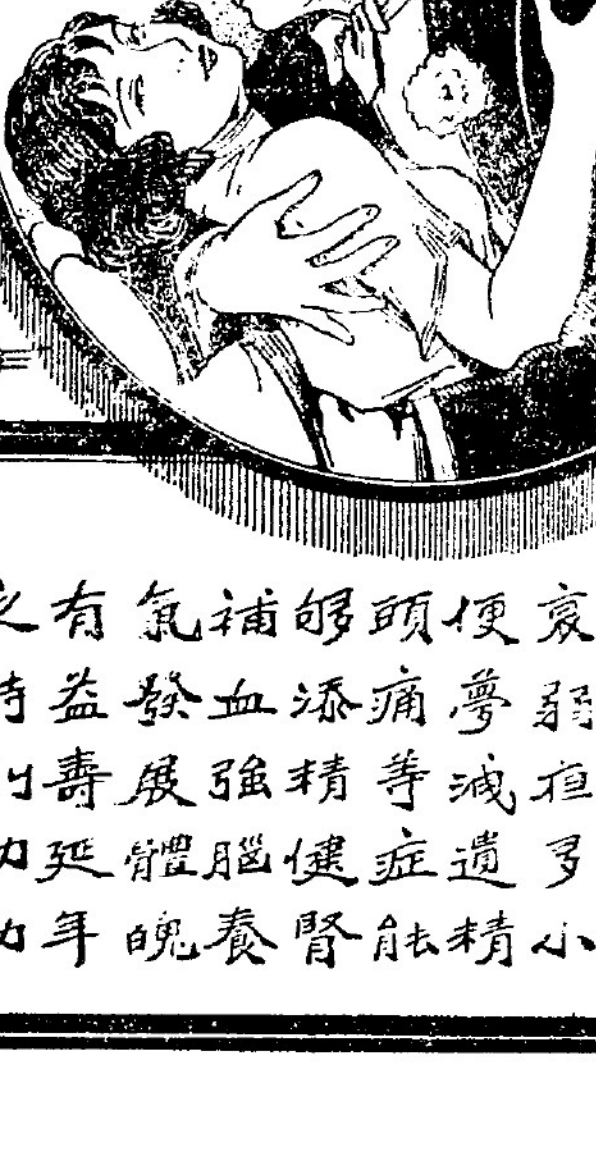 衰弱亱多小
便夢洩遺精
頭痛等症能
够添精健腎
補血強腦養
氣發展體魄
有益壽延年